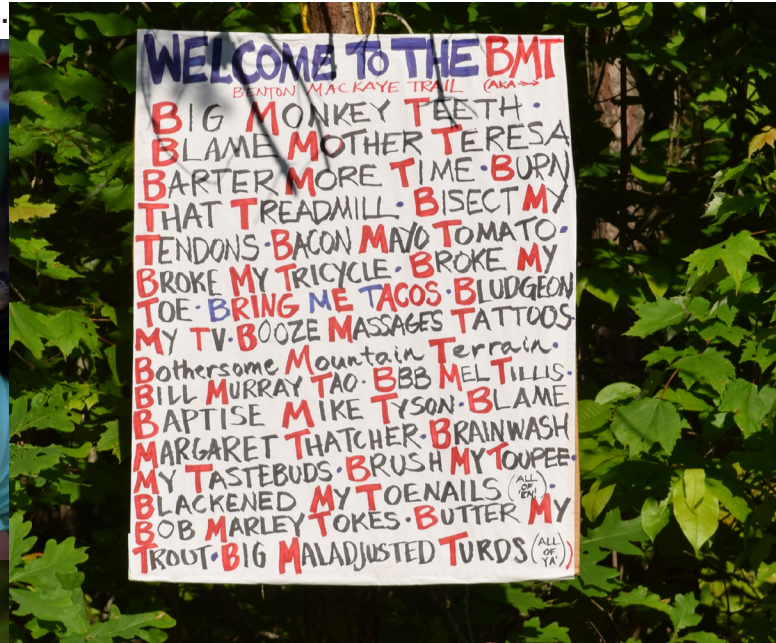 WELCOME TO THE BMT
BENTON MACKAYE TRAIL (AKA→
BIG MONKEY TEETH ·
BLAME MOTHER TERESA
BARTER MORE TIME · BURN
THAT TREADMILL · BISECT MY
TENDONS · BACON MAYO TOMATO ·
BROKE MY TRICYCLE · BROKE MY
TOE · BRING ME TACOS · BLUDGEON
MY TV · BOOZE MASSAGES TATTOOS ·
Bothersome Mountain Terrain ·
BILL MURRAY TAO · BBB MEL TILLIS ·
BAPTISE MIKE TYSON · BLAME
MARGARET THATCHER · BRAINWASH
MY TASTEBUDS · BRUSH MY TOUPEE ·
BLACKENED MY TOENAILS (ALL OF 'EM) ·
BOB MARLEY TOKES · BUTTER MY
TROUT · BIG MALADJUSTED TURDS (ALL OF YA'))